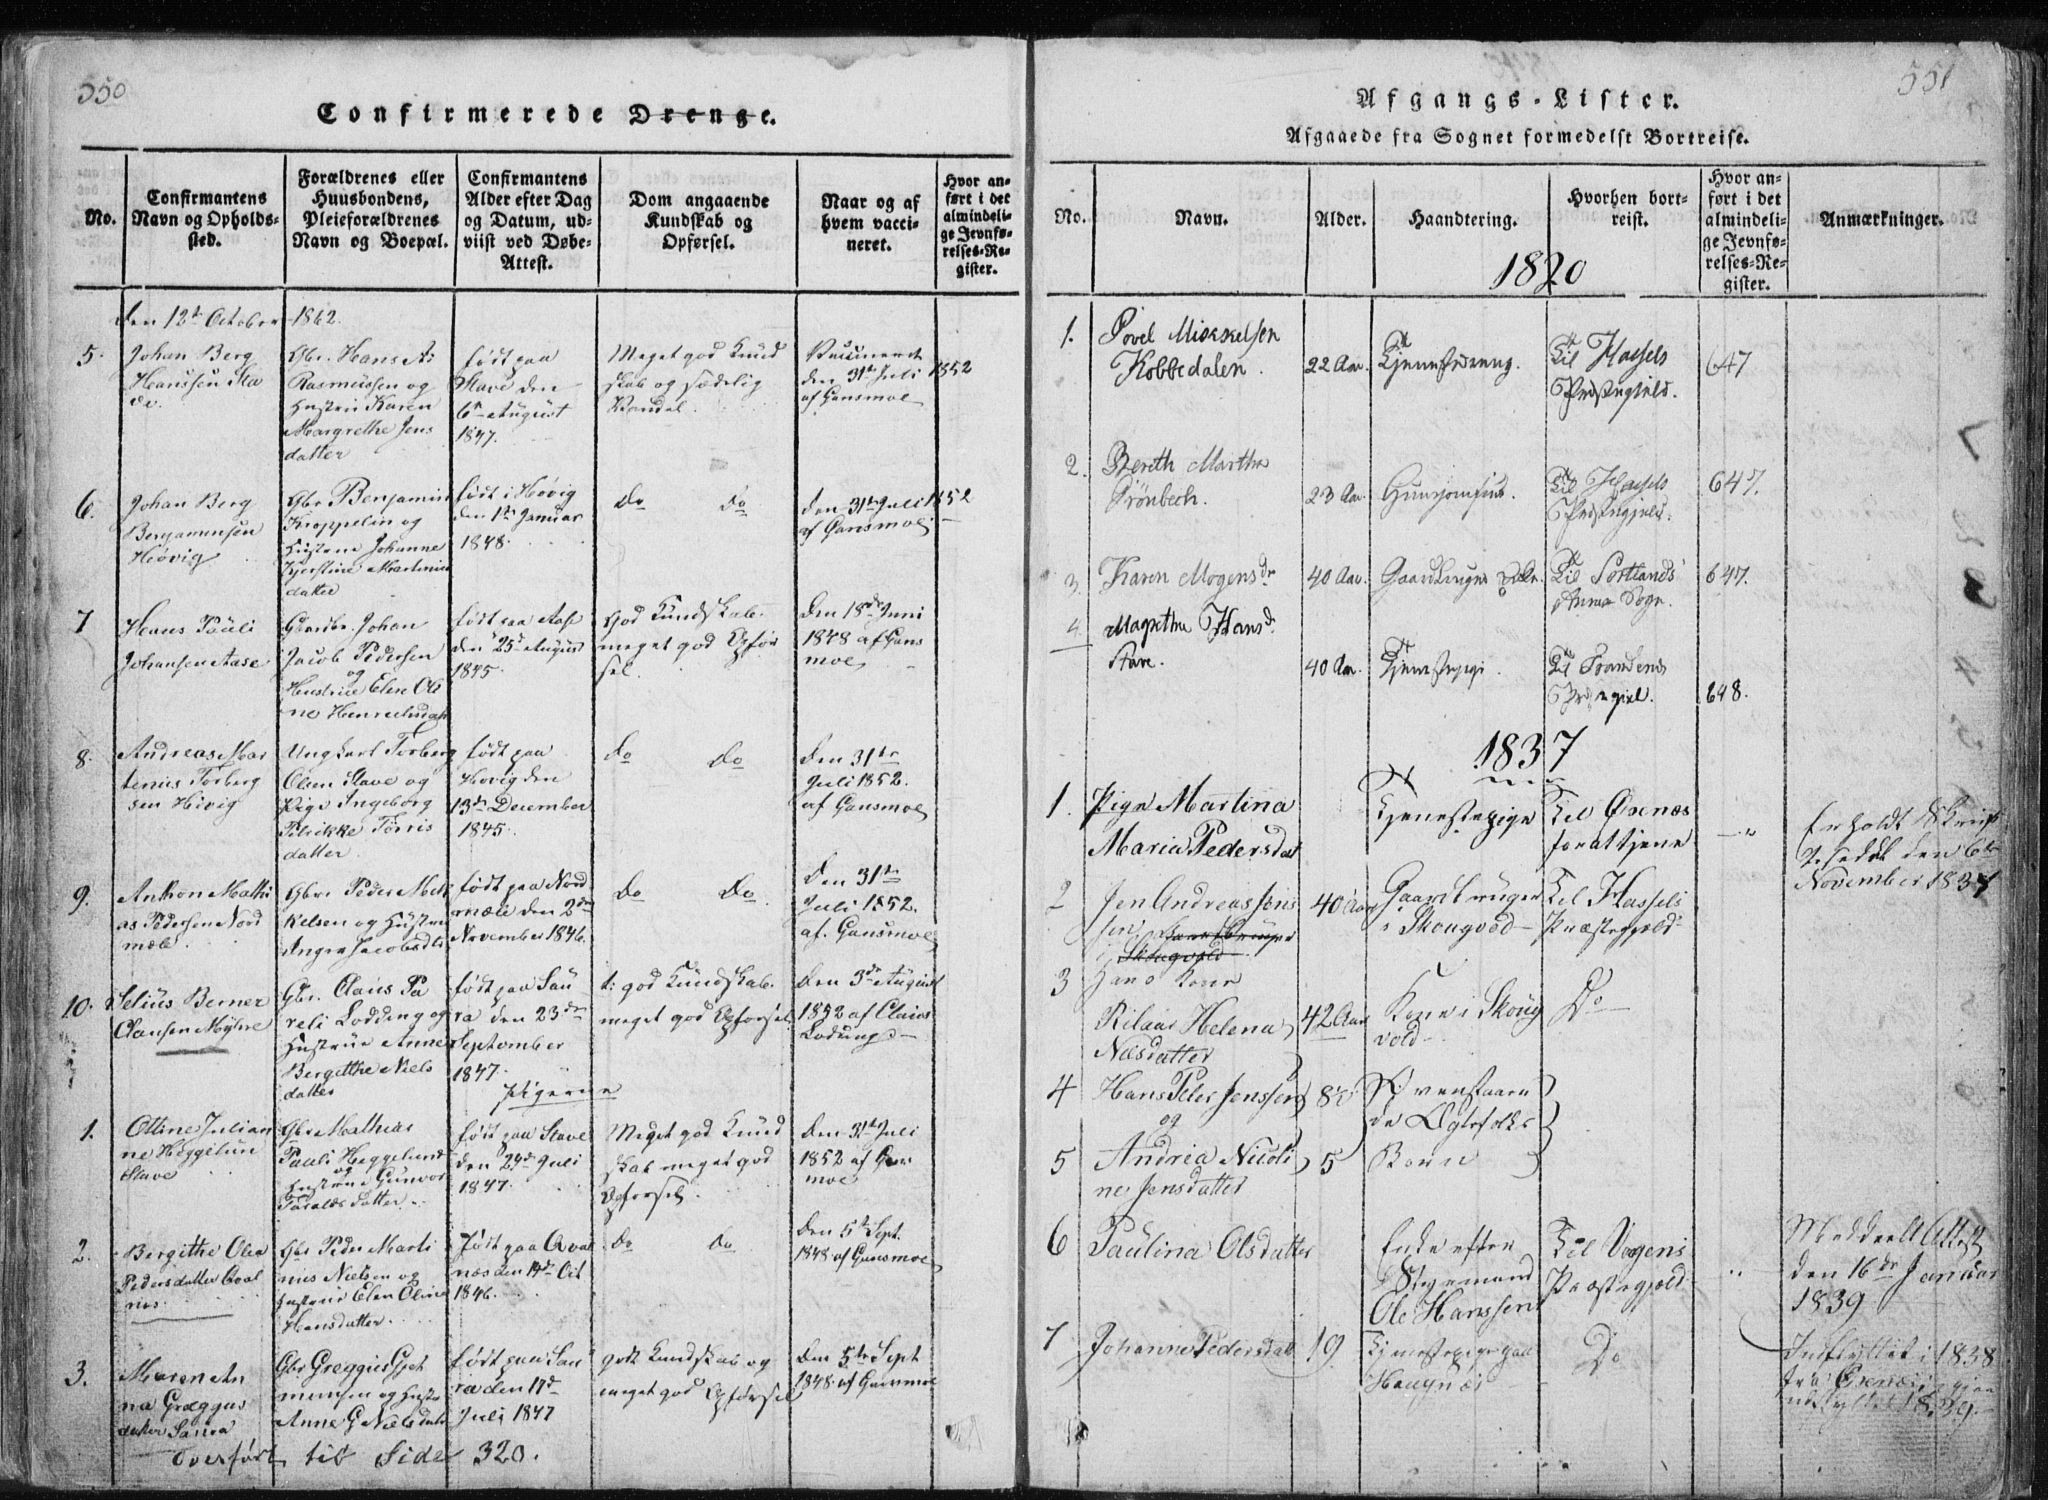 550
Confirmerede Drenge.
No.
Confirmantens
Navn og Opholds-
sted.
Forældrenes eller
Huusbondens,
Pleieforældrenes
Navn og Boepæl.
Confirmantens
Alder efter Dag
og Datum, ud-
viist ved Døbe-
Attest.
Dom angaaende
Kundskab og
Opførsel.
Naar og af
hvem vacci-
neret.
Hvor an-
ført i det
almindeli-
ge Jevnfø-
relses-Re-
gister.
den 12te October 1862.
5.
Johan Berg
Hanssen Sla
ve.
Gbr. Hans A:
Rasmussen og
Hustru Karen
Margrethe Jens
datter
født paa
Slave den
6te August
1847.
Meget god Kund
skab og sædelig
Vandel.
Vaccineret
den 31te Juli 1852
af Gansmoe
6.
Johan Berg
Benjaminsen
Høvig
Gbr Benjamin
Kroppelin og
Hustrue Johanne
Kjerstine Martinus
datter
født i Høvig
den 1te Januar
1848.
Do Do
den 31te Juli 1852
af Gansmoe
7
Hans Pauli
Johansen Aase
Gaardbr. Johan
Jacob Pedersen
og
Hustrue Elen Oli
ne
født paa Aase
den 25de August
1845.
God Kundskab.
meget god Opfør
sel.
den 18de Juni
1848 af Gans
moe
8.
Andreas Mar
tenius Torberg
sen Høvig
Ungkarl Torberg
Olsen Slave og
Pige Ingeborg
Petrikke Tørris
datter
født paa
Høvig den
13de December
1845.
Do Do
den 31te
Juli 1852.
af Gansmoe
9.
Anthon Mathi
as Pedersen Nord
mæle
Gbr. Peder Mik
kelsen og Hustru
Jacobsdtr
født paa Nord
mæle den 2den
November 1846.
Do Do
den 31te
Juli 1852.
af Gansmoe
10.
Selius Berner
Clausen Myhre
Gbr. Claus Pa
reli Lodding og
Hustrue Anne
Bergitthe Niels
datter
født paa Sau
ra den 23de
September
1847.
t: god Kundskab.
meget god Opførsel
den 3de August
1852 af Claus
Lodding
Pigerne
1.
Ottine Julian
ne Heggelun
Slave
Gbr Mathias
Pauli Heggelund
og
Hustrue Gunvor
datter
født paa Slave
den 24de Juli
1847.
Meget god Kund
skab meget god
Opførsel.
den 31te Juli
1852 af Gans
moe
2.
Bergithe Olea
Pedersdatter Qval
nes
Gbr Peder Marti
nus Nielsen og
Hustrue Elen Oline
Hansdatter
født paa Qval
næs den 14de Oct
1846.
Do Do
den 5te Sept.
1848 af Gansmoe
3.
Maren An
na Græggus
datter Saura
Gbr Greggus Gjet
mundsen og Hustru
Anne G Nielsdatt
født paa Sau
ra den 17de
Juli 1847
godt Kundskab og
meget god Opførsel
den 5te Sept
1848 af Gansmoe
overført til Side 320.
551
Afgangs-Lister.
Afgaaede fra Sognet formedelst Bortreise.
No.
Navn.
Alder.
Haandtering.
Hvorhen bort-
reist.
Hvor an-
ført i det
almindeli-
ge Jevnfø-
relses-Re-
gister.
Anmærkninger.
1820
1.
Povel Mickkelsen
Kobbedalen.
22 Aar.
Tjenestedreng.
Til Hassels
Præstegjeld.
647
2.
Bereth Martha
Grönbech.
23 Aar.
Til Hassels
Præstegjeld.
647.
3.
Karen Mogensdr
40 Aar.
Til Sortlands
Annex Sogn.
647.
4.
Magretha Hansdr
Stave.
40 Aar.
Tjenestepige.
Til Trondenes
Præstegjel.
648.
1837
1.
Pige Martina
Maria Pedersdat
Tjenestepige
Til Øxenæs
for at tjene
Erholdt Skrift
Seddel den 6te
November 1837
2
Jen Andreas Jens
sen
40 Aar
Gaardbruger
i Skougvod
Til Hassels
Præstegjeld
3
Hans Kone
Rilaar Helena
Nilsdatter
42 Aar
Kone i Skoug
vold
Do
4
Hans Peter Jenssen
og
8
Ovenstaaen
de Ægtefolks
5
Andrea Nicoli
ne Jensdatter
5
Børn
6
Paulina Olsdatter
Enke efter
Styrmand
Ole Hanssen
Til Vogens
Præstegjeld
Meddeelt Attest
den 16de Januar
1839
7
Johanna Pedersdatt
19
Tjenestepige paa
Haugnæs
Do
Indflyttet i 1838
fra Øxenæs igjen
udflyttet 1839.